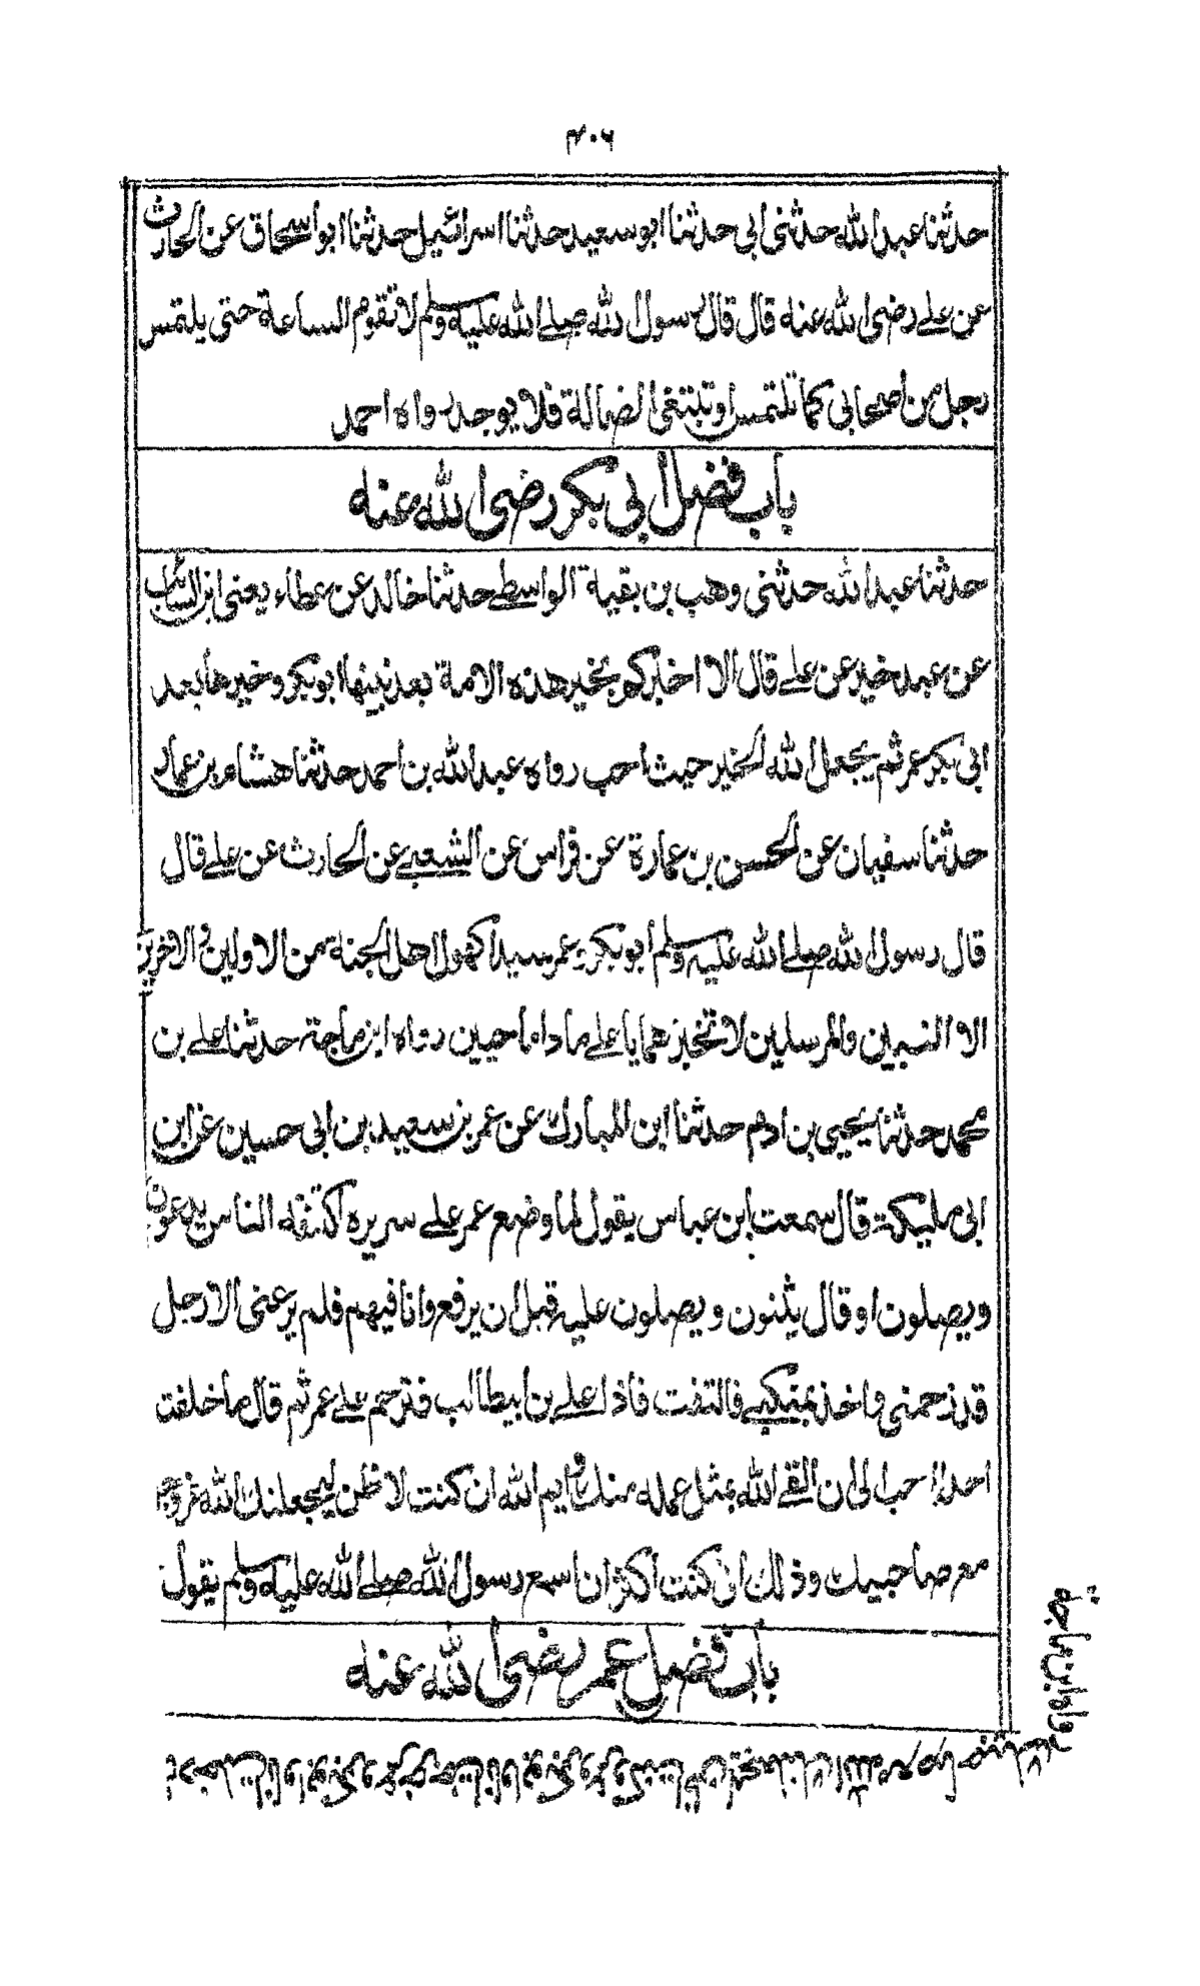 ٤٠٦
حدثنا عبدالله حدثنى ابى حدثنا ابو سعيد حدثنا اسرائيل حدثنا ابو اسحاق عن الحارث
عن على رضى الله عنه قال قال رسول الله صلى الله عليه وسلم لا تقوم الساعة حتى يلتمس
رجل من اصحابى كما تلتمس او تبتغى الضالة فلا يوجد رواه احمد
باب فضل ابى بكر رضى الله عنه
حدثنا عبدالله حدثنى وهب بن بقية الواسطى حدثنا خالد عن عطاء يعنى ابن السائب
عن عبد خير عن على قال الا اخبركم بخير هذه الامة بعد نبيها ابو بكر وخيرها بعد
ابى بكر عمر ثم يجعل الله الخير حيث احب رواه عبدالله بن احمد حدثنا هشام بن عمار
حدثنا سفيان عن الحسن بن عمارة عن فراس عن الشعبى عن الحارث عن على قال
قال رسول الله صلى الله عليه وسلم ابو بكر وعمر سيدا كهول اهل الجنة من الاولين والاخرين
الا النبيين والمرسلين لا تخبرهما يا على ما داما حيين رواه ابن ماجة حدثنا على بن
محمد حدثنا يحيى بن ادم حدثنا ابن المبارك عن عمر بن سعيد بن ابى حسين عن ابن
ابى مليكة قال سمعت ابن عباس يقول لما وضع عمر على سريره اكتنفه الناس يدعون
ويصلون او قال يثنون ويصلون عليه قبل ان يرفع وانا فيهم فلم يرعنى الا رجل
قد زحمنى واخذ بمنكبى فالتفت فاذا على بن ابيطالب فترحم على عمر ثم قال ما خلفت
احدا احب الى ان القى الله بمثل عمله منك وايم الله ان كنت لاظن ليجعلنك الله عزوجل
مع صاحبيك وذلك ان كنت اكثر ان اسمع رسول الله صلى الله عليه وسلم يقول
باب فضل عمر رضى الله عنه
رواه ابن ماجة